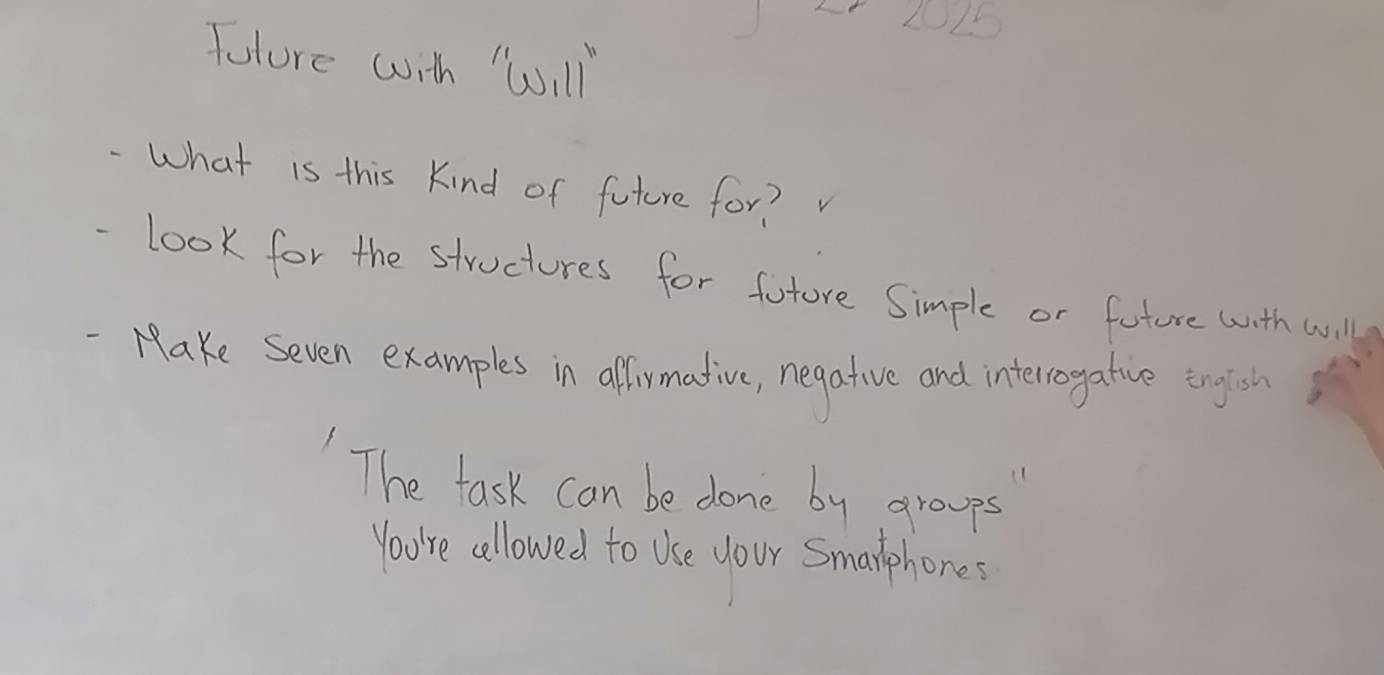 2025
Future with "Will"
- What is this kind of future for? ✓
- Look for the structures for future Simple or future with will
- Make seven examples in affirmative, negative and interrogative English
"The task can be done by groups"
You're allowed to Use your Smartphones